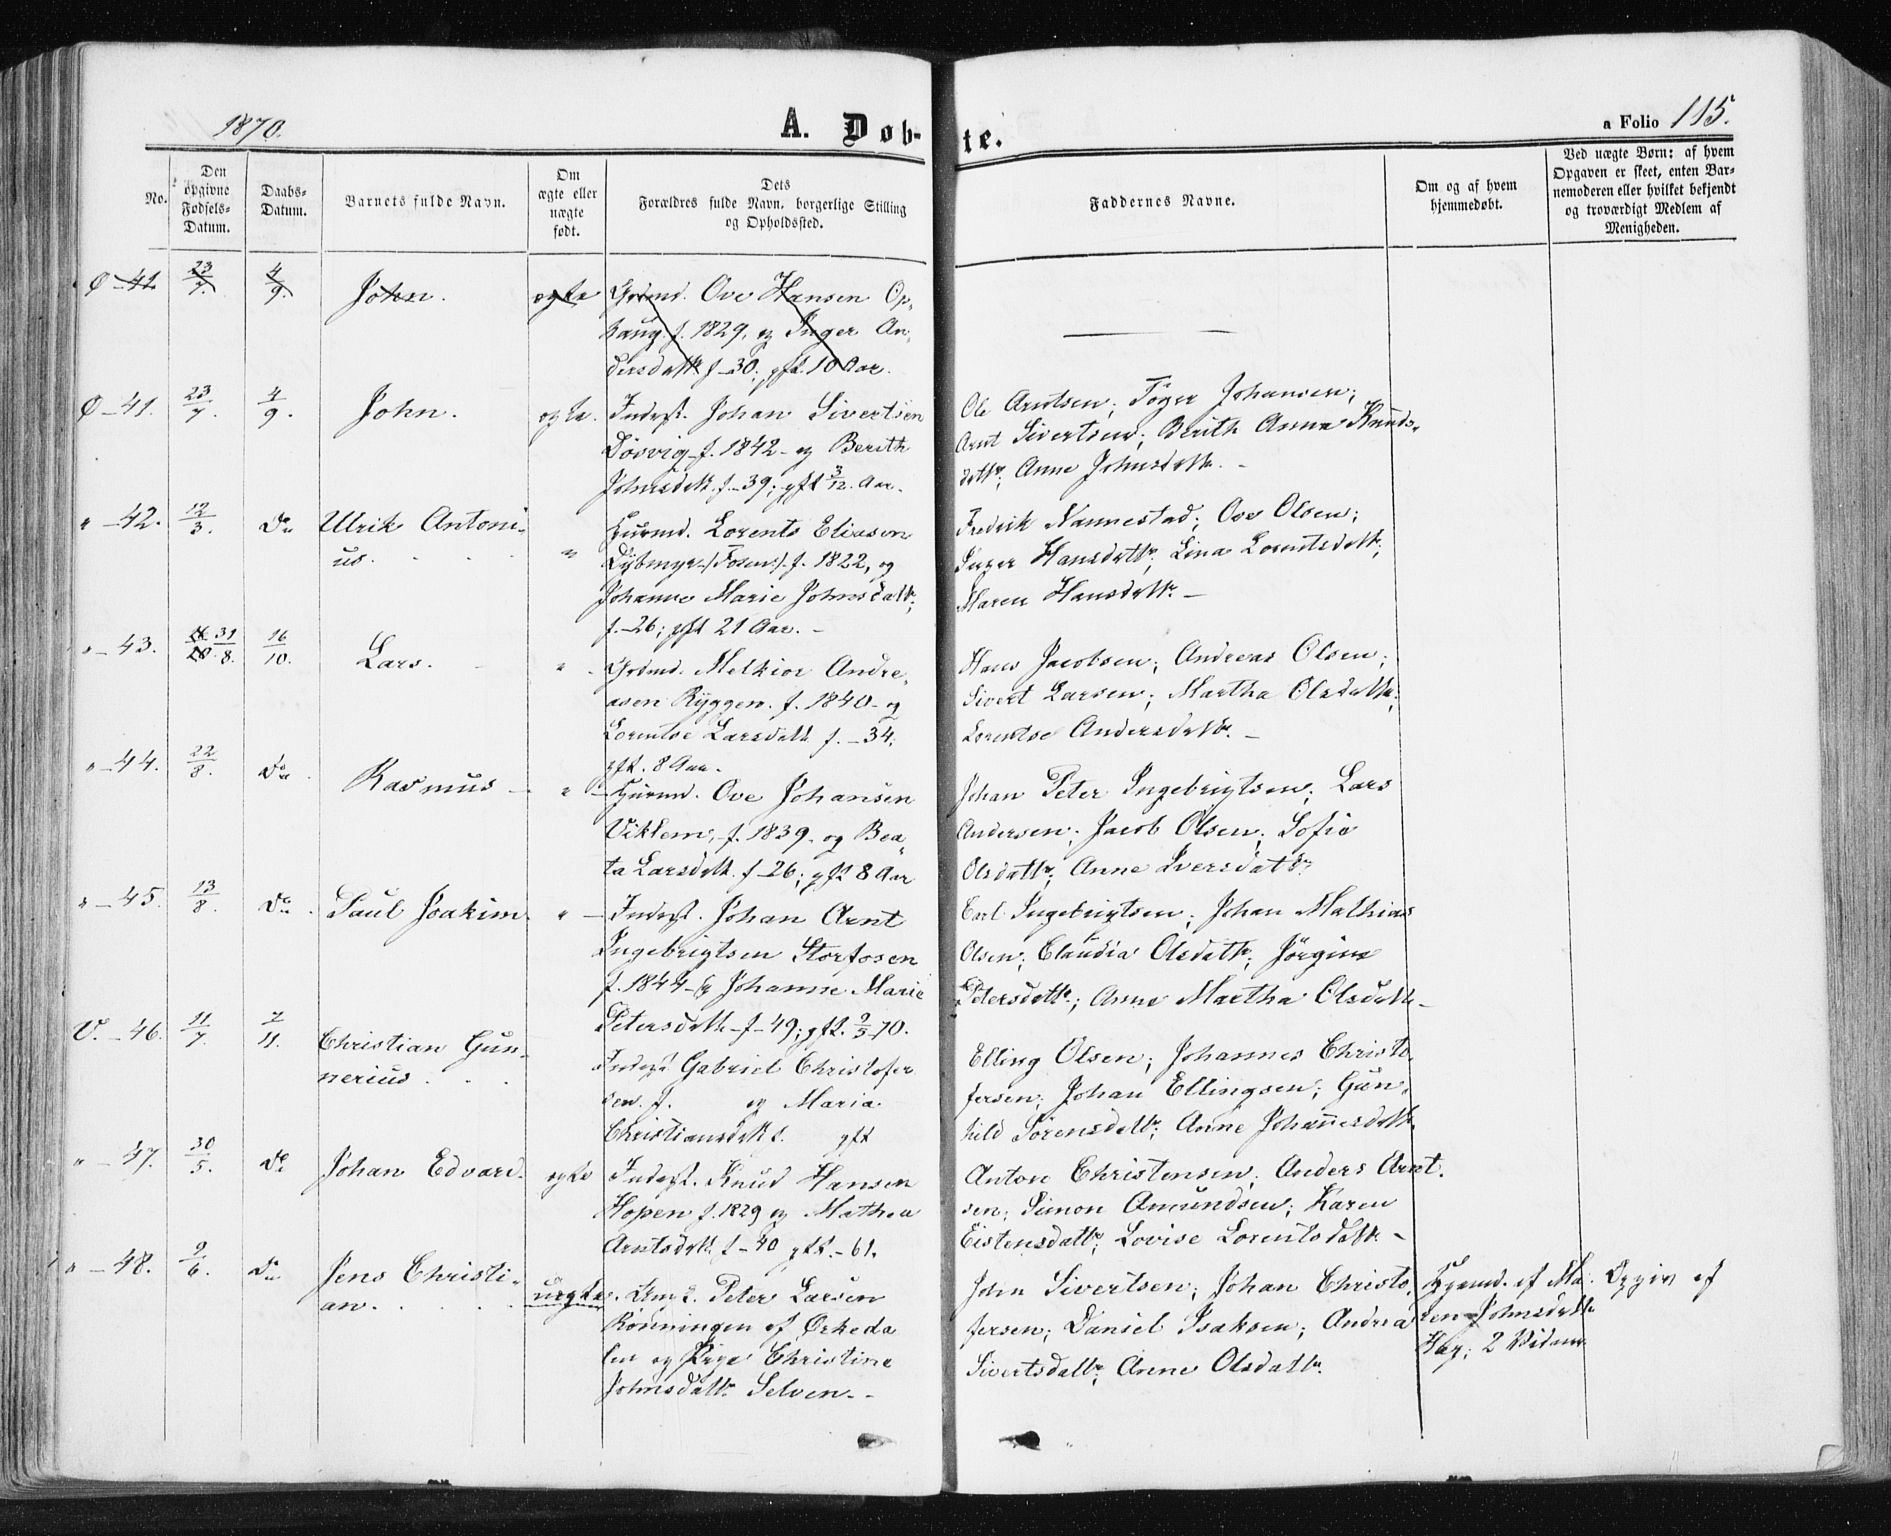 1870.
A. Døb-
te.
a Folio 115.
No.
Den
opgivne
Fødsels-
Datum.
Daabs-
Datum.
Barnets fulde Navn.
Om
ægte eller
uægte
født.
Dets
Forældres fulde Navn, borgerlige Stilling
og Opholdssted.
Faddernes Navne.
Om og af hvem
hjemmedøbt.
Ved uægte Børn: af hvem
Opgaven er skeet, enten Bar-
nemoderen eller hvilket bekjendt
og troværdigt Medlem af
Menigheden.
Ø - 41. 23/7. 4/9. John. ægte Grdmd. Ove Hansen Op-
haug f. 1829, og Inger An-
dersdatt. f. -30; gft. 10 Aar.
Ø - 41. 23/7. 4/9. John. ægte. Inderst. Johan Sivertsen
Døsvig f. 1842 - og Berith
Johnsdatt. f. -39; gft 3/12. Aar.
Ole Arntsen; Tøger Johansen;
Arnt Sivertsen; Berith Anna Knuds-
dattr; Anne Johnsdattr. -
" - 42. 12/3. Do Ulrik Antoni-
us. " Huusmd. Lorents Eliasen
Dybmyr /: Fosen :/ f. 1822, og
Johanne Marie Johnsdatt.
f. -26; gft 21 Aar. -
Fredrik Nannestad; Ove Olsen;
Inger Hansdattr; Lina Lorentsdattr;
Maren Hansdattr. -
" - 43. 31/8. 16/10. Lars. " Grdmd. Melkior Andre-
asen Ryggen. f. 1840 - og
Lorentse Larsdatt f. -34;
gft. 8 Aar.
Hans Jacobsen; Andreas Olsen;
Sivert Larsen; Martha Olsdattr;
Lorentse Andersdattr. -
" - 44. 22/8. Do Rasmus " Huusmd. Ove Johansen
Viklem, f. 1839 - og Bea-
ta Larsdatt. f. -26; gft 8 Aar
Johan Peter Ingebrigtsen; Lars
Andersen; Jacob Olsen; Sofie
Olsdattr; Anne Iversdattr
" - 45. 13/8. Do Paul Joakim " Inderst. Johan Arnt
Ingebrigtsen Storfosen
f. 1844 - og Johanne Marie
Petersdatt - f. -49; gft. 2/5 -70.
Carl Ingebrigtsen; Johan Mathias
Olsen; Claudia Olsdattr; Jørgine
Petersdattr; Anne Martha Olsdattr -
V. - 46. 11/7. 2/11. Christian Gun-
nerius. Inderst Gabriel Christofer
sen. f. og Maria
Christiansdatt f. gft
Elling Olsen; Johannes Christo-
fersen; Johan Ellingsen; Gun-
hild Sørensdattr; Anne Johannesdattr
" - 47. 30/5. Do Johan Edvard. ægte Inderst. Knud Hansen
Hopen f. 1829 og Mathea
Arntsdatt. f. -40 gft. -61.
Anton Christensen; Anders Arnt-
sen; Simon Amundsen; Karen
Eistensdattr; Lovise Lorentsdattr -
" - 48. 2/6. Do Jens Christi-
an. uægte. Ung. Peter Larsen
Rønningen af Ørkeda
len og Pige Christine
Johnsdattr Selven. -
John Sivertsen; Johan Christo-
fersen; Daniel Isaksen; Andrea
Sivertsdattr; Anne Olsdattr.
Hjemd. af Ma-
ren Johnsdattr
Hag; 2 Vidner
Opgiv af